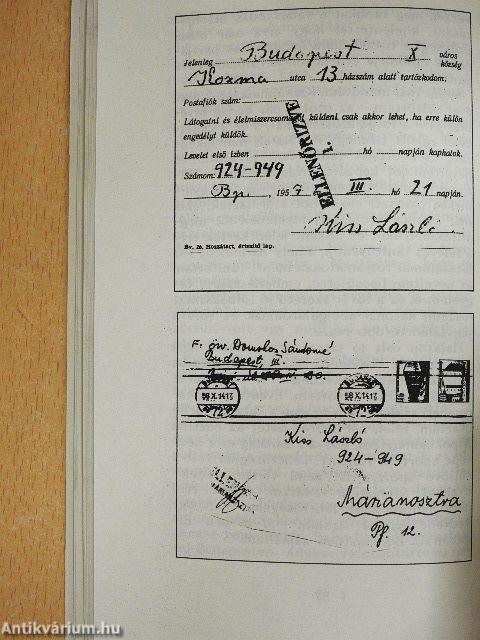 Jelenleg Budapest X város
község
Kozma utca 13 házszám alatt tartózkodom.
Postafiók szám:
Látogatni és élelmiszercsomagot küldeni csak akkor lehet, ha erre külön
engedélyt küldök.
Levelet első ízben hó napján kaphatok.
Számom: 924-949
Bp, 1957 III. hó 21 napján.
ELLENŐRIZVE
1.
Kiss László
Bv. 18. Hozzátart. értesítő lap.
F: özv. Domolos Sándorné
Budapest, III.
58 X.14 13
72
58 X.14 13
72
Kiss László
924-949
Márianosztra
Pf. 12.
Antikvárium.hu